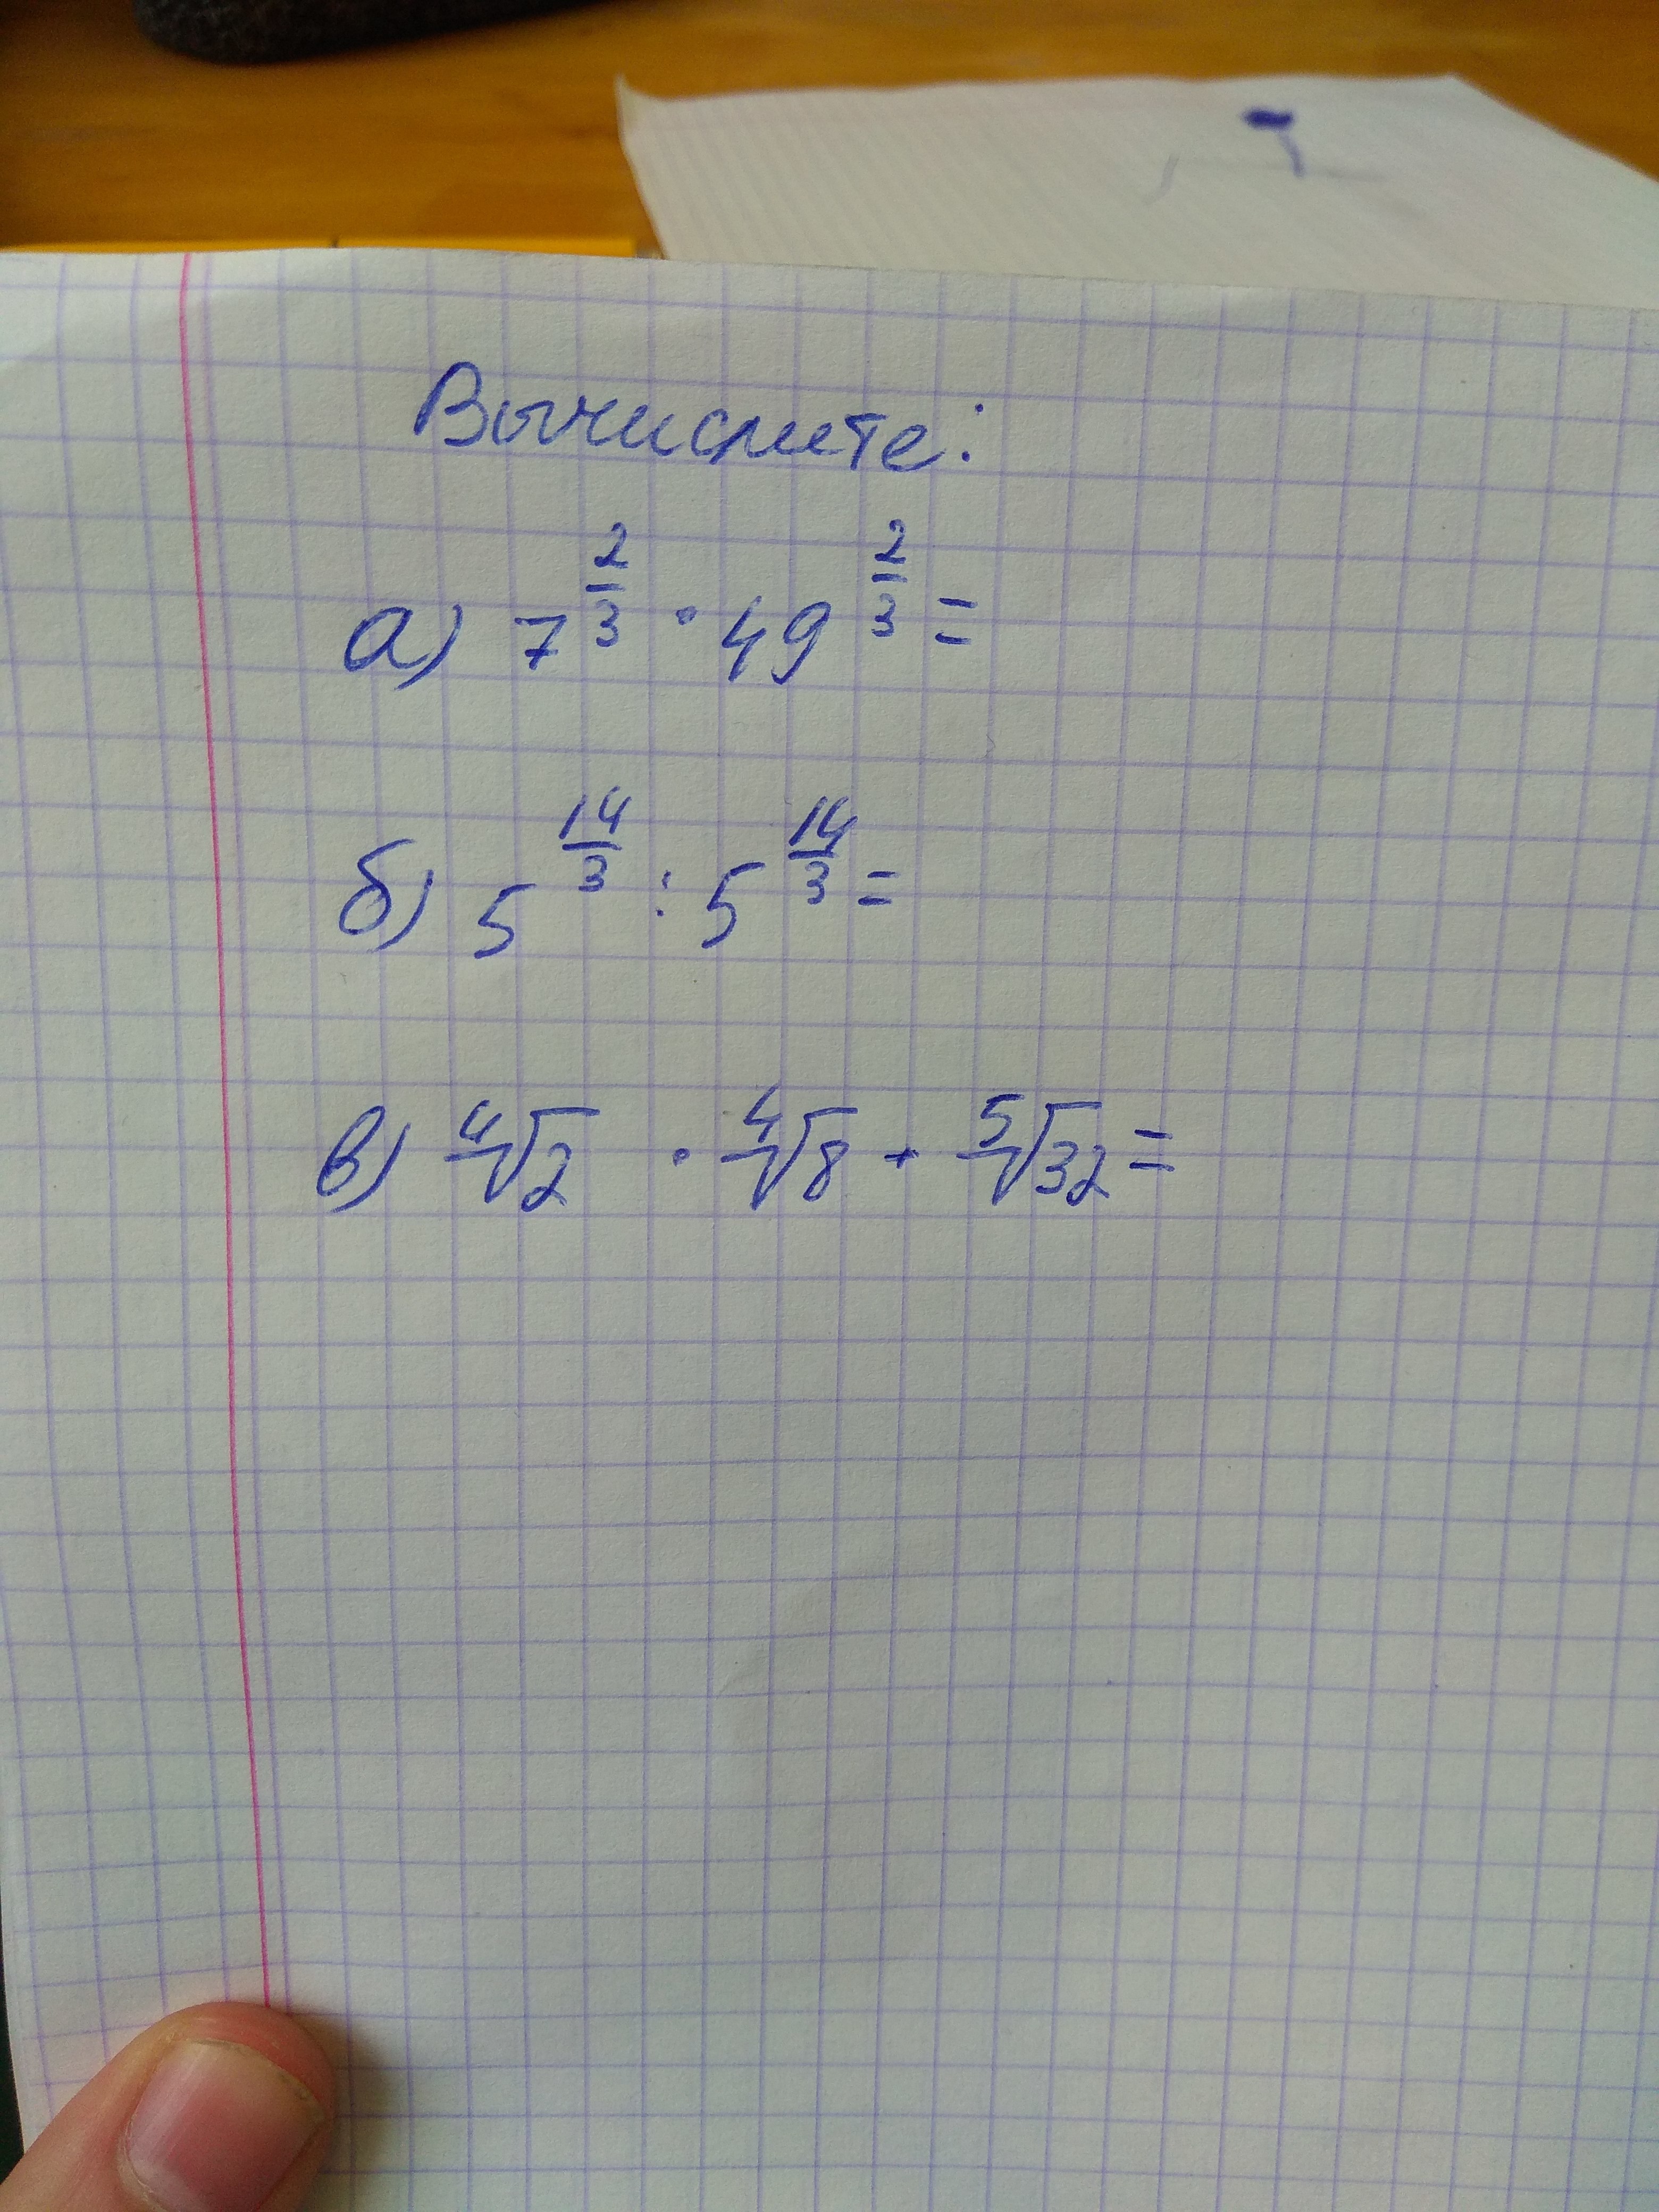 Вычислите:
а) 7^{\frac{2}{3}} · 49^{\frac{2}{3}} =
б) 5^{\frac{14}{3}} : 5^{\frac{14}{3}} =
в) \sqrt[4]{2} · \sqrt[4]{8} + \sqrt[5]{32} =